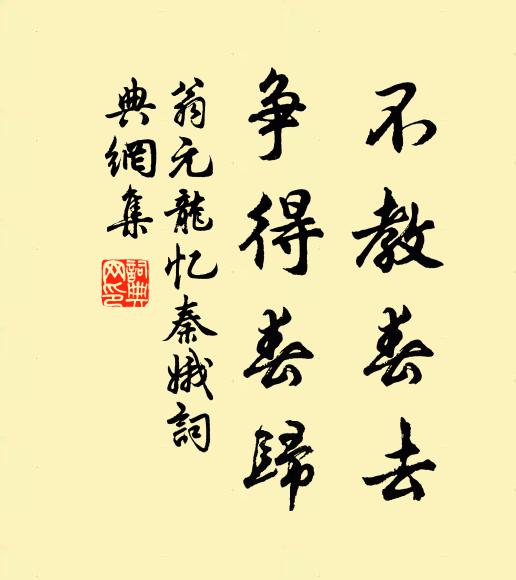 不教春去
争得春歸
翁元龍忆秦娥詞
典網集
詞典网印